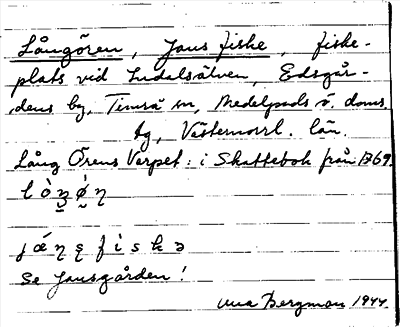 Långören, Jans fiske, fiske-
plats vid Indalsälven, Edsgår-
dens by, Timrå sn, Medelpads ö. doms.
tg, Västernorrl. län.
Lång Örens Varpet: i Skattebok från 1769
Se Jansgården!
Bergman 1944.